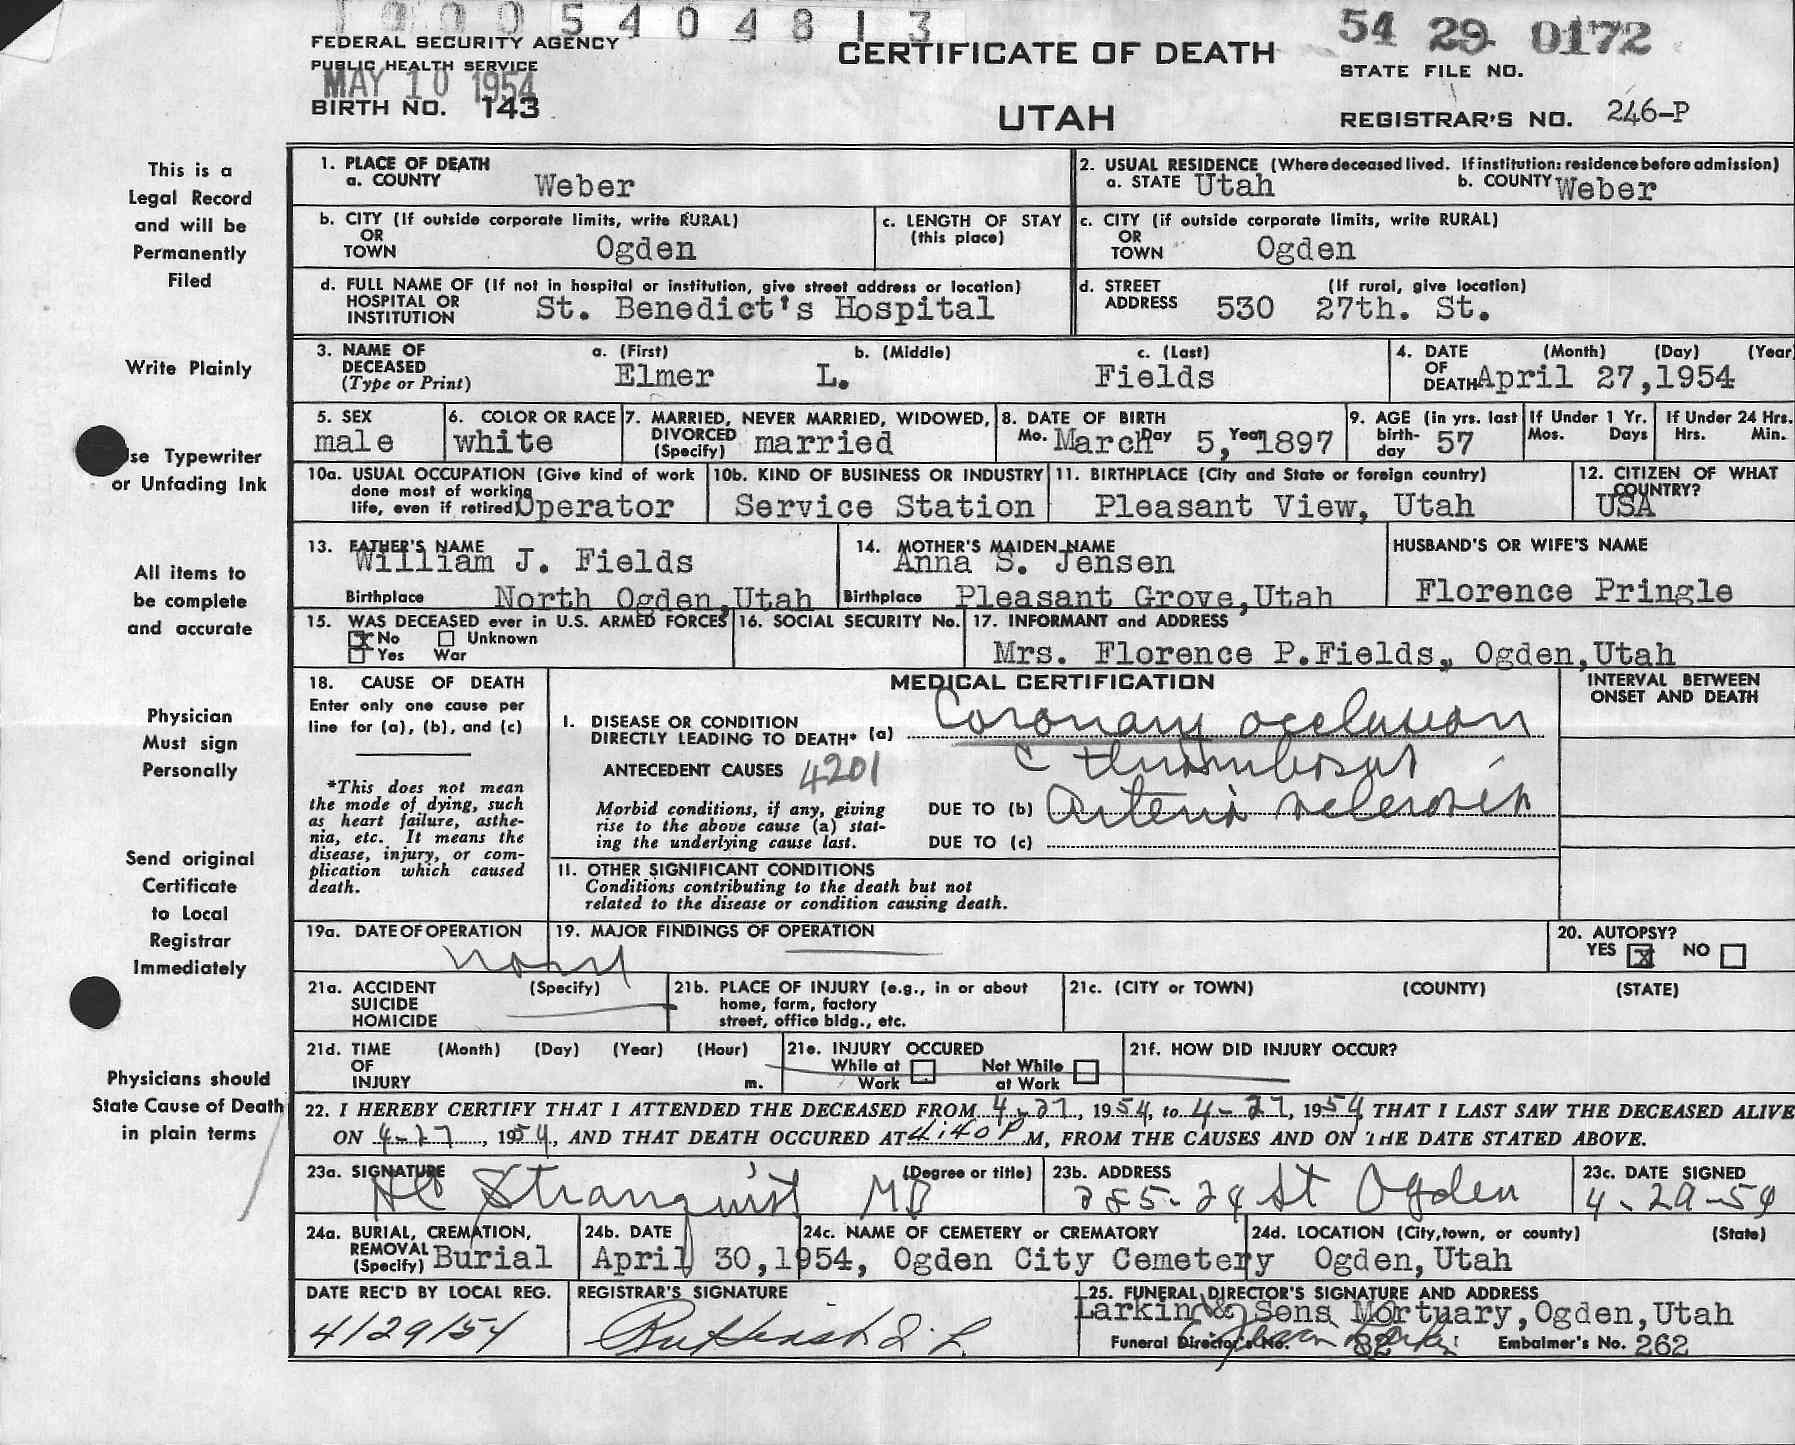 1 0 0 0 5 4 0 4 8 1 3
FEDERAL SECURITY AGENCY
PUBLIC HEALTH SERVICE
MAY 10 1954
BIRTH NO. 143
CERTIFICATE OF DEATH
UTAH
54 29 0172
STATE FILE NO.
REGISTRAR'S NO. 246-P
This is a
Legal Record
and will be
Permanently
Filed
Write Plainly
se Typewriter
or Unfading Ink
All items to
be complete
and accurate
Physician
Must sign
Personally
Send original
Certificate
to Local
Registrar
Immediately
Physicians should
State Cause of Death
in plain terms
1. PLACE OF DEATH
a. COUNTY Weber
2. USUAL RESIDENCE (Where deceased lived. If institution: residence before admission)
a. STATE Utah b. COUNTY Weber
b. CITY (If outside corporate limits, write RURAL)
OR
TOWN Ogden
c. LENGTH OF STAY
(this place)
c. CITY (if outside corporate limits, write RURAL)
OR
TOWN Ogden
d. FULL NAME OF (If not in hospital or institution, give street address or location)
HOSPITAL OR
INSTITUTION St. Benedict's Hospital
d. STREET (If rural, give location)
ADDRESS 530 27th. St.
3. NAME OF
DECEASED
(Type or Print)
a. (First) b. (Middle) c. (Last)
Elmer L. Fields
4. DATE (Month) (Day) (Year
OF
DEATH April 27,1954
5. SEX
male
6. COLOR OR RACE
white
7. MARRIED, NEVER MARRIED, WIDOWED,
DIVORCED
(Specify) married
8. DATE OF BIRTH
Mo. March Day 5, Year 1897
9. AGE (in yrs. last
birth-
day 57
If Under 1 Yr.
Mos. Days
If Under 24 Hrs.
Hrs. Min.
10a. USUAL OCCUPATION (Give kind of work
done most of working
life, even if retired) Operator
10b. KIND OF BUSINESS OR INDUSTRY
Service Station
11. BIRTHPLACE (City and State or foreign country)
Pleasant View, Utah
12. CITIZEN OF WHAT
COUNTRY?
USA
13. FATHER'S NAME
William J. Fields
Birthplace North Ogden,Utah
14. MOTHER'S MAIDEN NAME
Anna S. Jensen
Birthplace Pleasant Grove,Utah
HUSBAND'S OR WIFE'S NAME
Florence Pringle
15. WAS DECEASED ever in U.S. ARMED FORCES
No Unknown
Yes War
16. SOCIAL SECURITY No.
17. INFORMANT and ADDRESS
Mrs. Florence P.Fields, Ogden,Utah
18. CAUSE OF DEATH
Enter only one cause per
line for (a), (b), and (c)
*This does not mean
the mode of dying, such
as heart failure, asthe-
nia, etc. It means the
disease, injury, or com-
plication which caused
death.
MEDICAL CERTIFICATION
INTERVAL BETWEEN
ONSET AND DEATH
I. DISEASE OR CONDITION
DIRECTLY LEADING TO DEATH* (a) Coronary occlusion
c thrombosis
ANTECEDENT CAUSES 4201
Morbid conditions, if any, giving
rise to the above cause (a) stat-
ing the underlying cause last.
DUE TO (b) Arterio sclerosis
DUE TO (c)
II. OTHER SIGNIFICANT CONDITIONS
Conditions contributing to the death but not
related to the disease or condition causing death.
19a. DATE OF OPERATION
none
19. MAJOR FINDINGS OF OPERATION
20. AUTOPSY?
YES X NO
21a. ACCIDENT (Specify)
SUICIDE
HOMICIDE
21b. PLACE OF INJURY (e.g., in or about
home, farm, factory
street, office bldg., etc.
21c. (CITY or TOWN) (COUNTY) (STATE)
21d. TIME (Month) (Day) (Year) (Hour)
OF
INJURY m.
21e. INJURY OCCURED
While at Not While
Work at Work
21f. HOW DID INJURY OCCUR?
22. I HEREBY CERTIFY THAT I ATTENDED THE DECEASED FROM 4-27, 1954, to 4-27, 1954 THAT I LAST SAW THE DECEASED ALIVE
ON 4-27, 1954, AND THAT DEATH OCCURED AT 4:40 P M, FROM THE CAUSES AND ON THE DATE STATED ABOVE.
23a. SIGNATURE (Degree or title)
HC Stranquist MD
23b. ADDRESS
385-24 St Ogden
23c. DATE SIGNED
4-29-54
24a. BURIAL, CREMATION,
REMOVAL
(Specify) Burial
24b. DATE
April 30,1954,
24c. NAME OF CEMETERY or CREMATORY
Ogden City Cemetery
24d. LOCATION (City,town, or county) (State)
Ogden,Utah
DATE REC'D BY LOCAL REG.
4/29/54
REGISTRAR'S SIGNATURE
25. FUNERAL DIRECTOR'S SIGNATURE AND ADDRESS
Larkin & Sons Mortuary,Ogden,Utah
Funeral Director's No. 82 Embalmer's No. 262